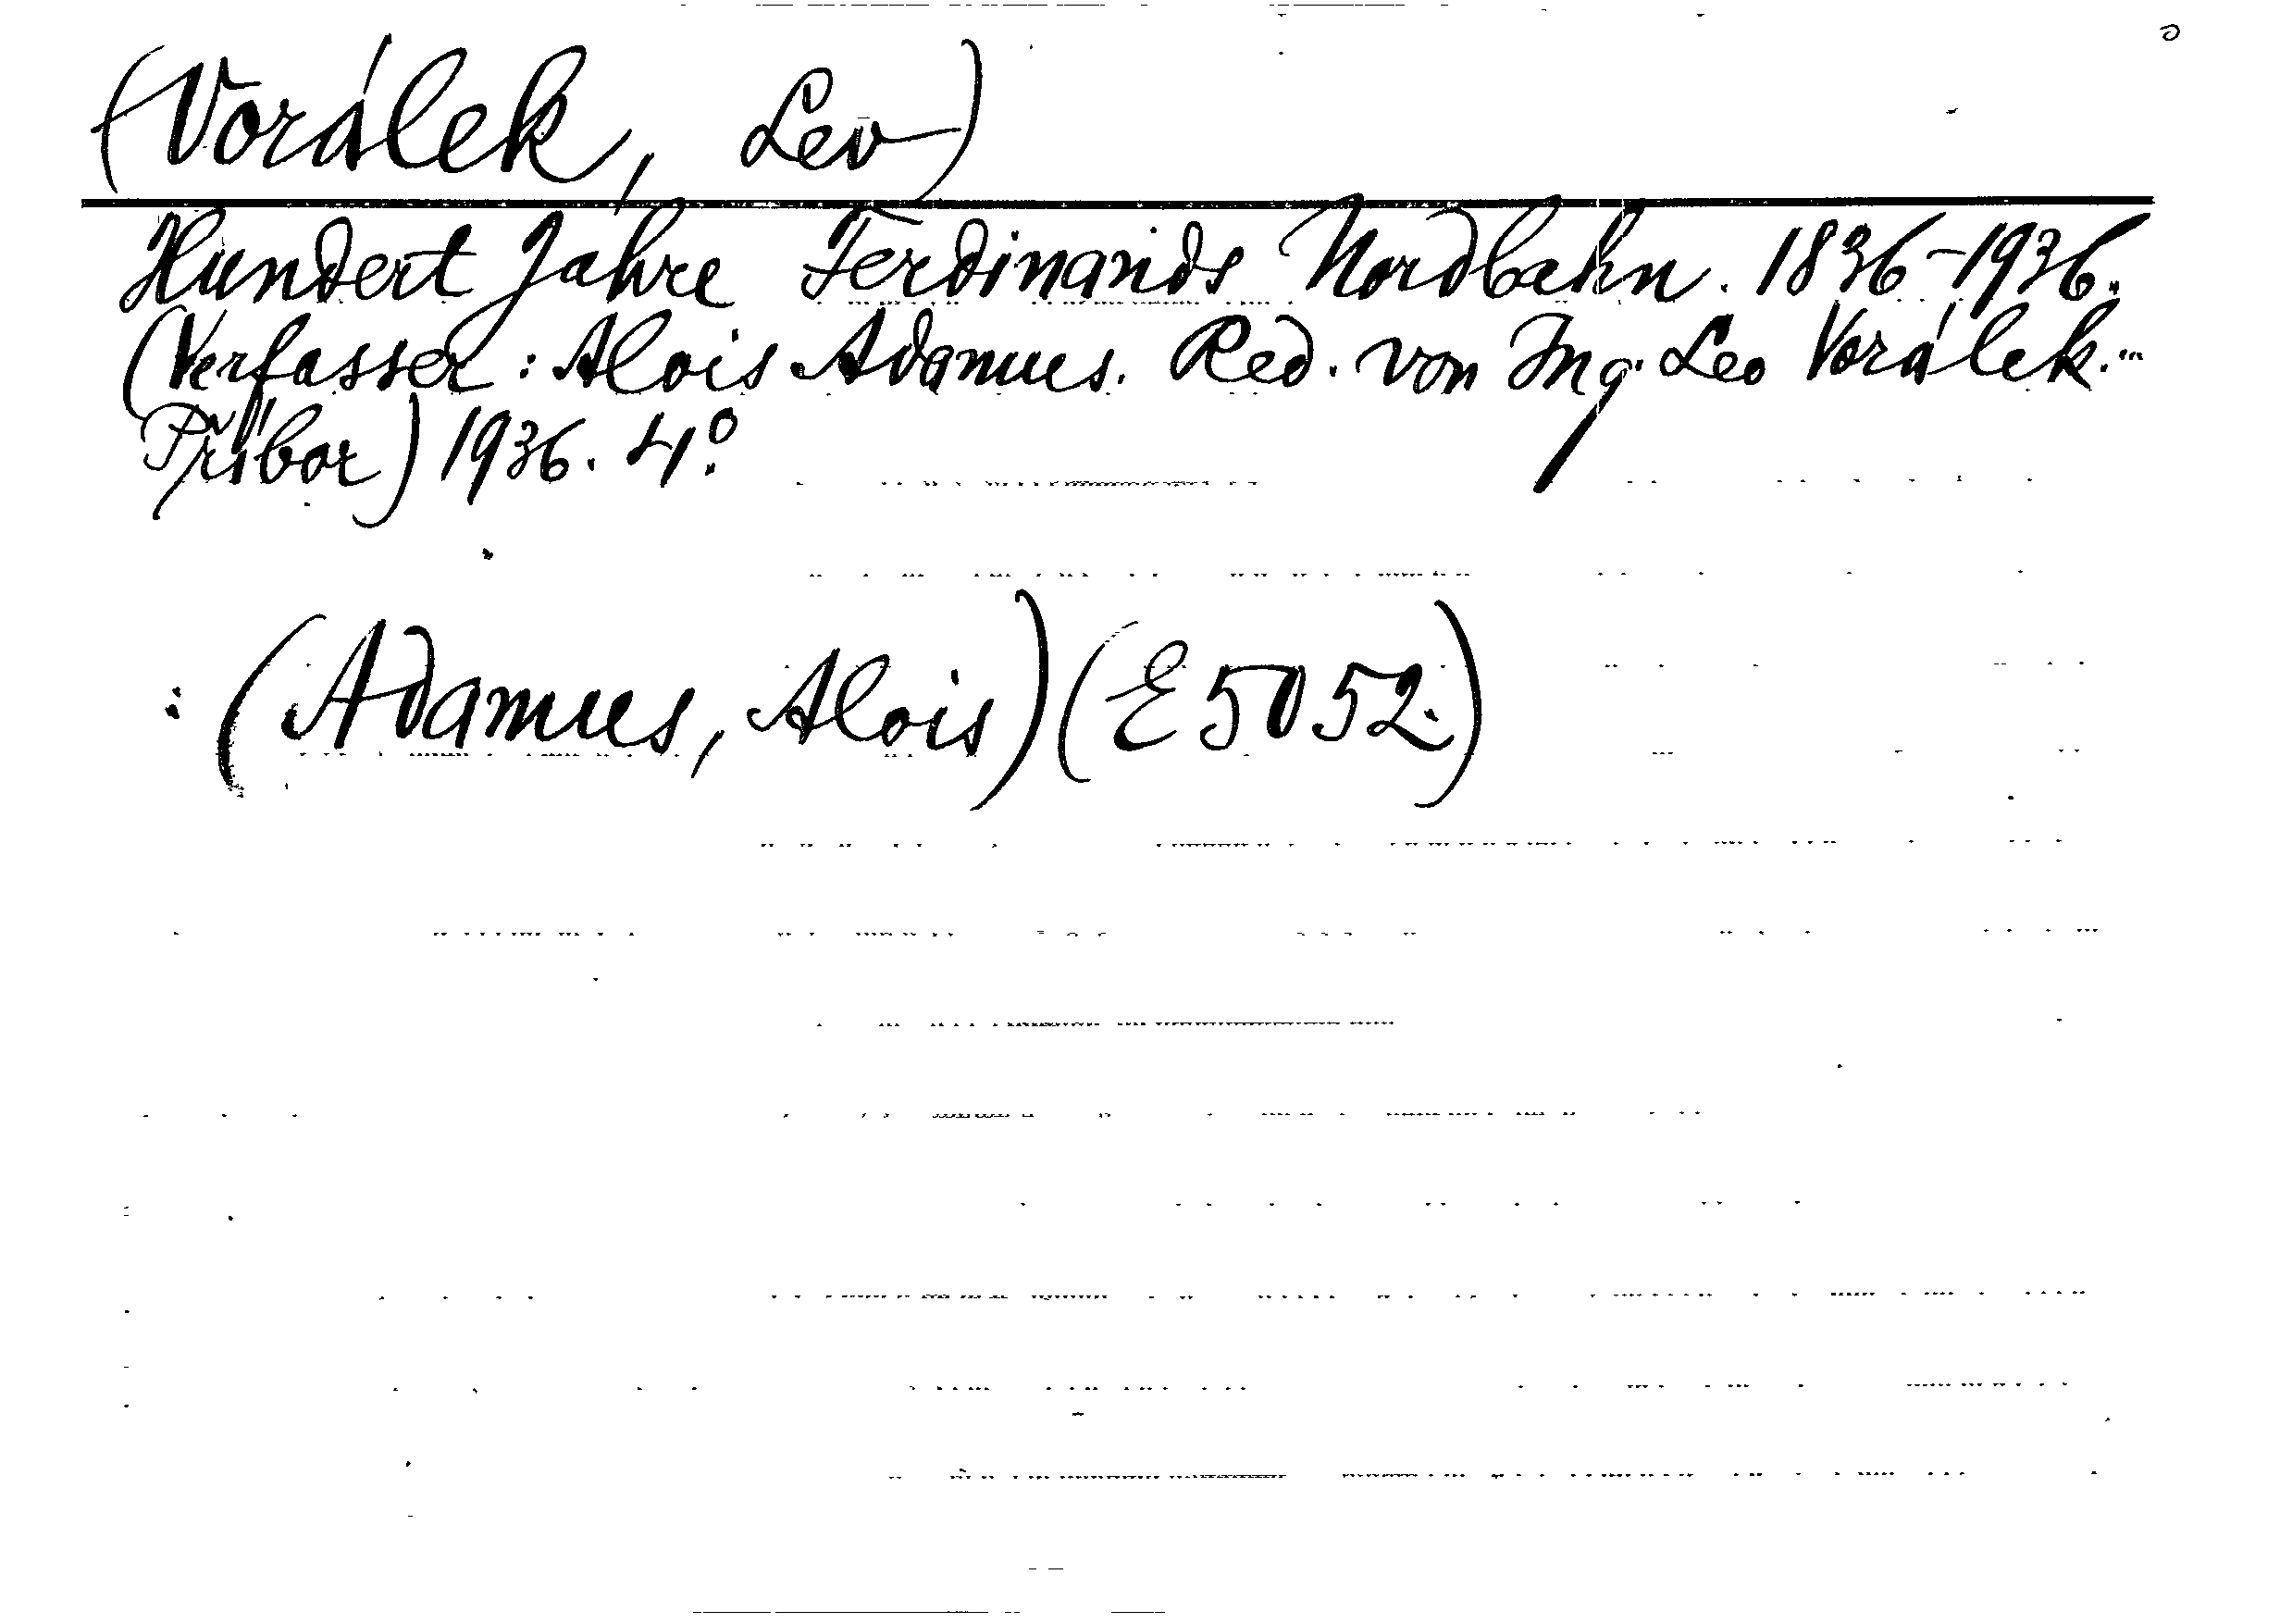 (Vorálek, Leo)
Hundert Jahre Ferdinands Nordbahn. 1836-1936.
(Verfasser: Alois Adamus. Red. von Ing. Leo Vorálek. ...
Příbor) 1936. 4°.
: (Adamus, Alois) (E 5052.)